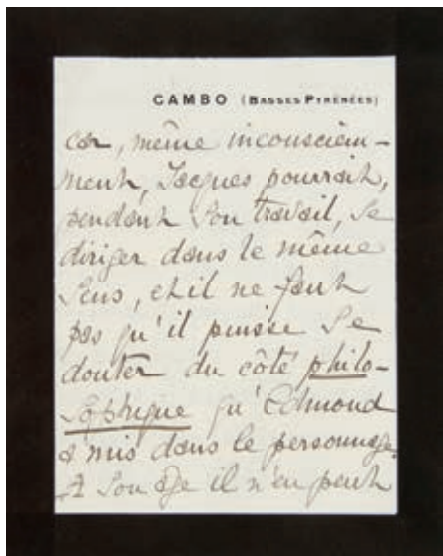 CAMBO (BASSES PYRÉNÉES)
car, même inconsciem-
ment, Jacques pourrait,
pendant son travail, se
diriger dans le même
sens, et il ne faut
pas qu'il puisse se
douter du côté philo-
sophique qu'Edmond
a mis dans le personnage.
A son âge il n'en peut